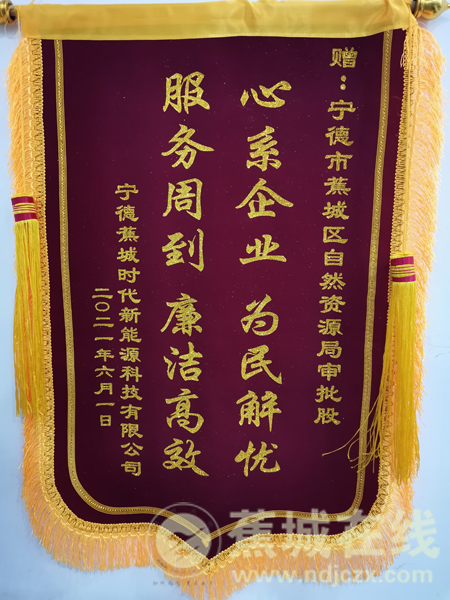 赠：宁德市蕉城区自然资源局审批股
心系企业 为民解忧
服务周到 廉洁高效
宁德蕉城时代新能源科技有限公司
二〇二一年六月一日
蕉城在线
www.ndjczx.com